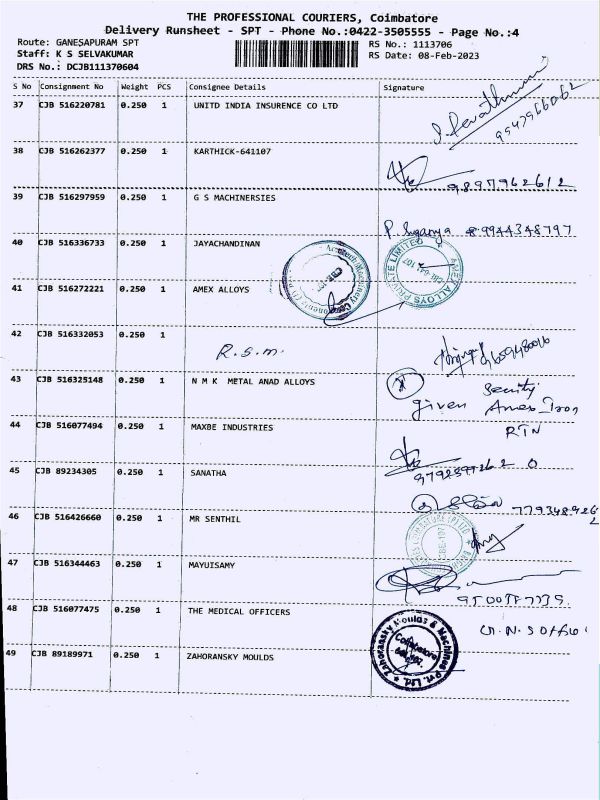 THE PROFESSIONAL COURIERS, Coimbatore
Delivery Runsheet - SPT - Phone No.:0422-3505555 - Page No.:4
Route: GANESAPURAM SPT
RS No.: 1113706
Staff: K S SELVAKUMAR
RS Date: 08-Feb-2023
DRS No.: DCJB111370604
S No Consignment No Weight PCS Consignee Details Signature
37 CJB 516220781 0.250 1 UNITD INDIA INSURENCE CO LTD
9547966062
38 CJB 516262377 0.250 1 KARTHICK-641107
9897962612
39 CJB 516297959 0.250 1 G S MACHINERSIES
P. Suganya 9944348797
40 CJB 516336733 0.250 1 JAYACHANDINAN
41 CJB 516272221 0.250 1 AMEX ALLOYS
AMEX ALLOYS PRIVATE LIMITED
CBE-641 107
42 CJB 516332053 0.250 1
R.S.M.
43 CJB 516325148 0.250 1 N M K METAL ANAD ALLOYS
Secuity
given Amex Iron
44 CJB 516077494 0.250 1 MAXBE INDUSTRIES
RTN
45 CJB 89234305 0.250 1 SANATHA
46 CJB 516426660 0.250 1 MR SENTHIL
47 CJB 516344463 0.250 1 MAYUISAMY
48 CJB 516077475 0.250 1 THE MEDICAL OFFICERS
49 CJB 89189971 0.250 1 ZAHORANSKY MOULDS
Zahoransky Moulds & Machines Pvt. Ltd.
Coimbatore